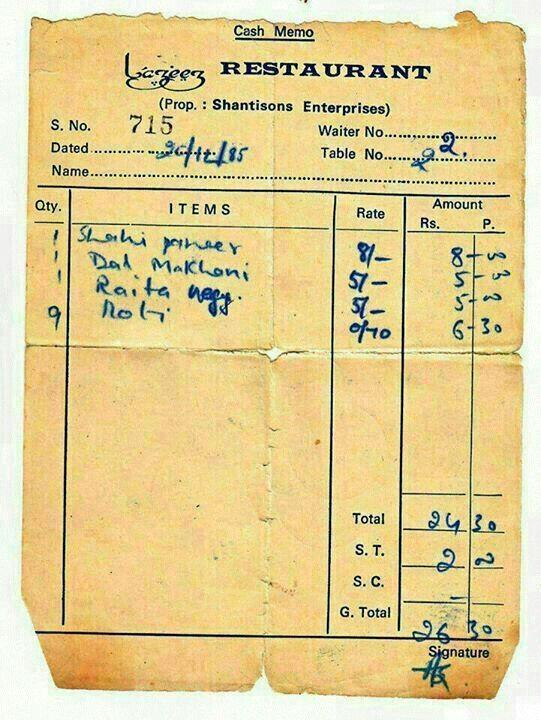 Cash Memo
Lazeez RESTAURANT
(Prop. : Shantisons Enterprises)
S. No. 715 Waiter No. 2.
Dated 20/12/85 Table No. 2
Name
Qty. ITEMS Rate Amount
Rs. P.
1 Shahi paneer 8/- 8-00
1 Dal Makhani 5/- 5-00
1 Raita vegy. 5/- 5-00
9 Roti 0/70 6-30
Total 24 30
S. T. 2 00
S. C. -
G. Total
26 30
Signature